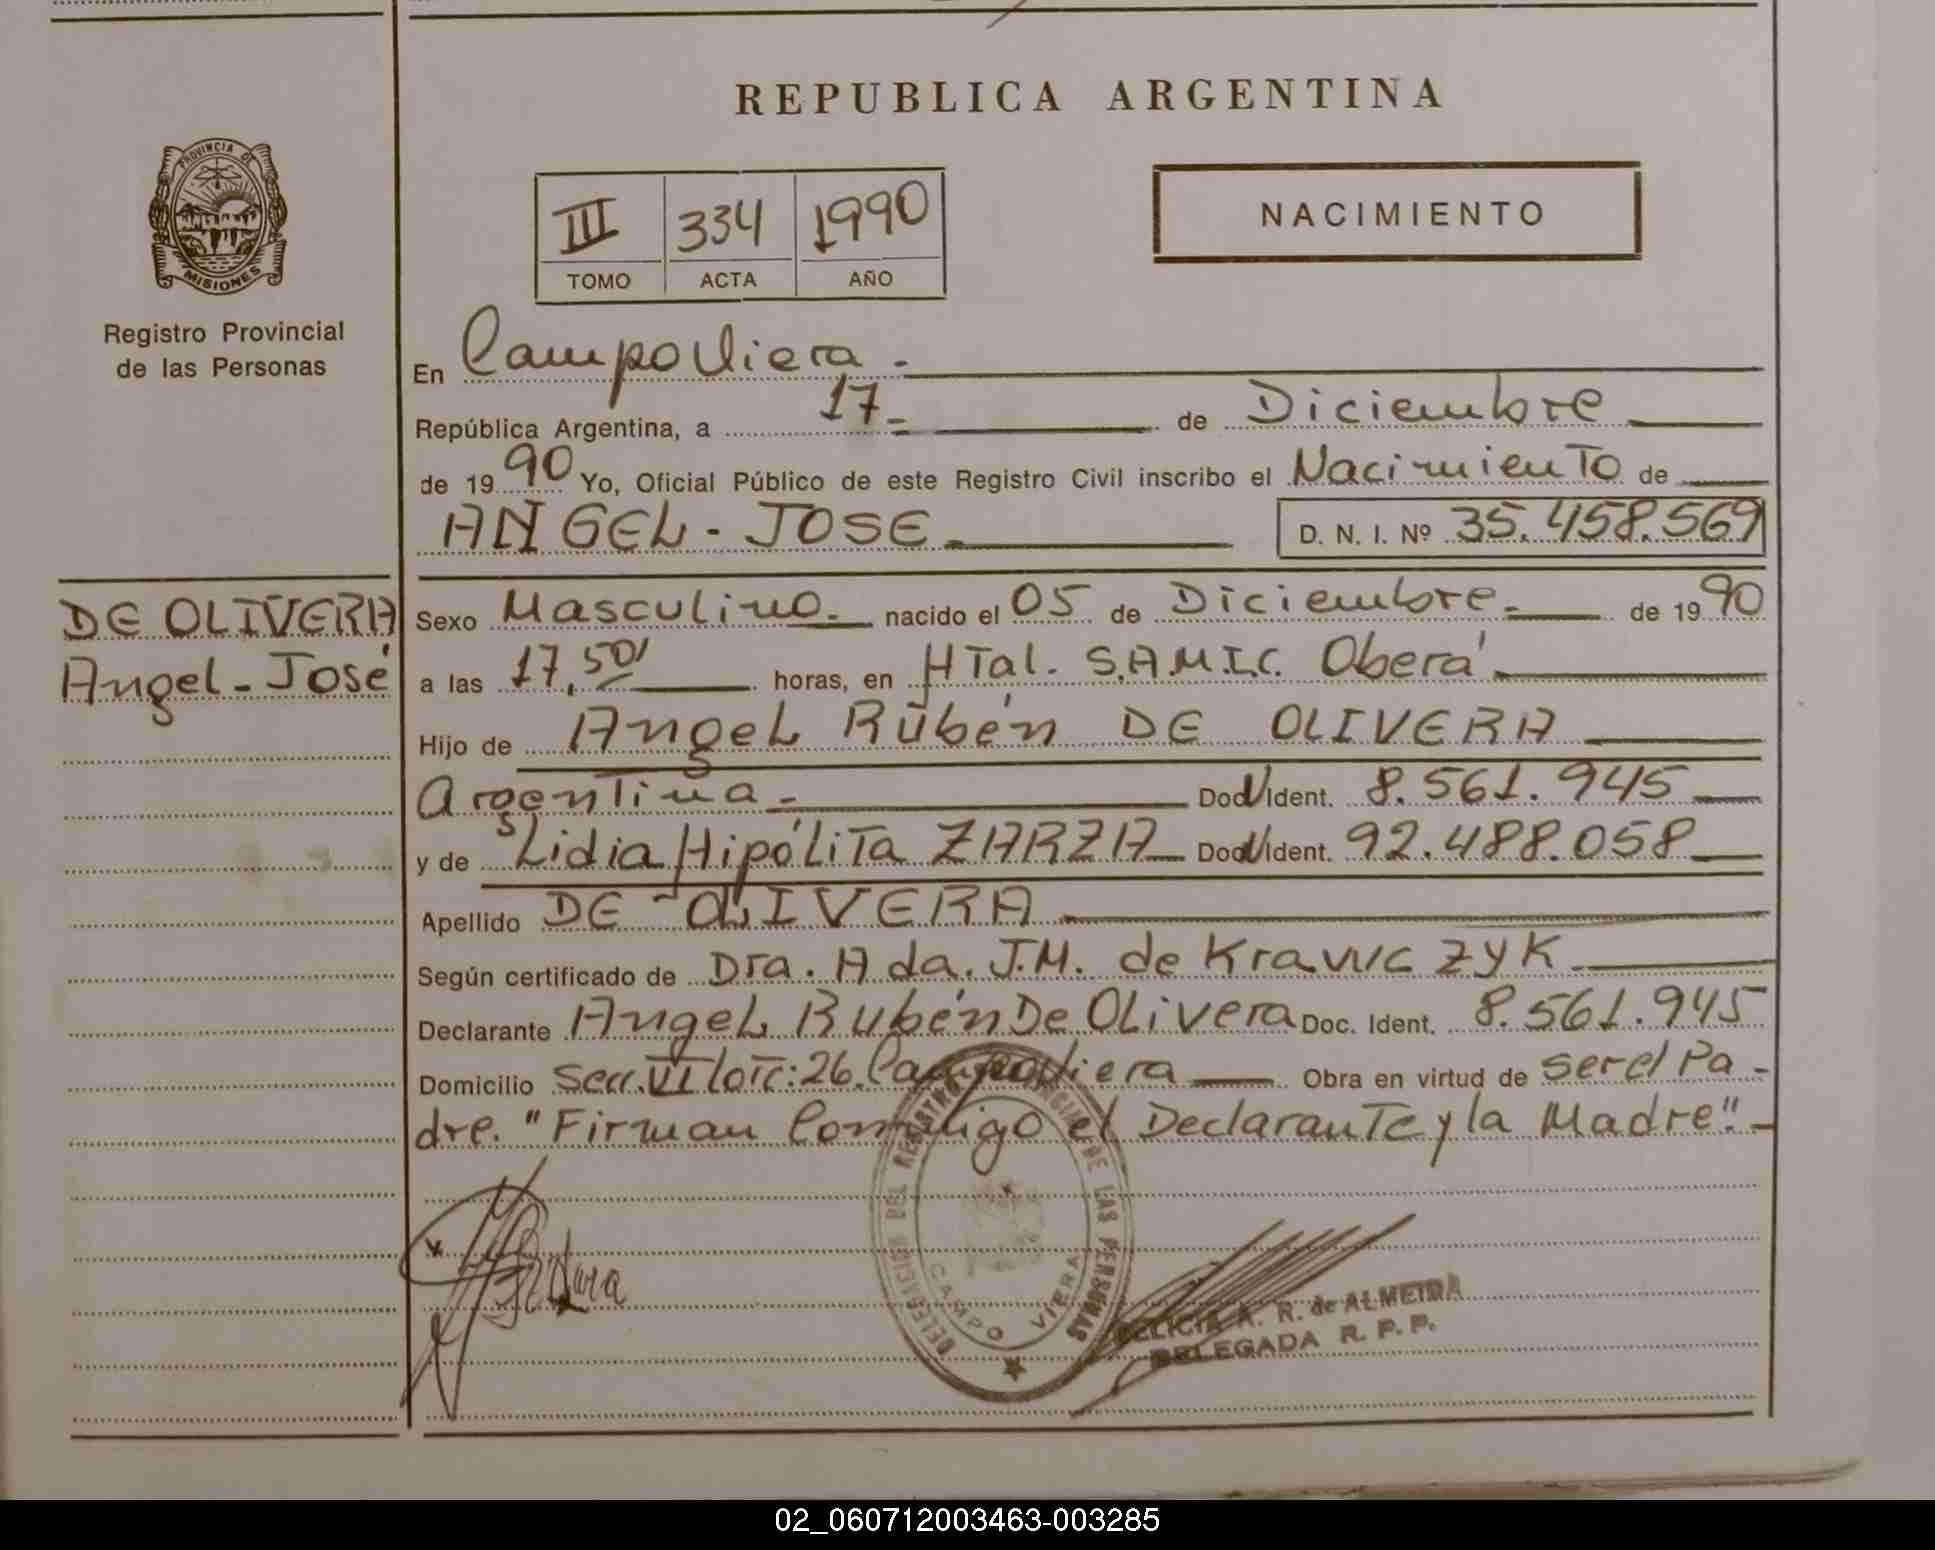 REPUBLICA ARGENTINA
PROVINCIA DE
MISIONES
Registro Provincial
de las Personas
III 334 1990
TOMO ACTA AÑO
NACIMIENTO
En Campo Viera.-
República Argentina, a 17.= de Diciembre
de 1990 Yo, Oficial Público de este Registro Civil inscribo el Nacimiento de
ANGEL - JOSE.
D. N. I. Nº 35.458.569
DE OLIVERA
Angel - José
Sexo Masculino.- nacido el 05 de Diciembre.- de 1990
a las 17,50' horas, en HTal. S.A.M.I.C. Oberá
Hijo de Angel Rubén DE OLIVERA
Argentina.- Doc. Ident. 8.561.945
y de Lidia Hipólita ZARZA Doc. Ident. 92.488.058
Apellido DE OLIVERA
Según certificado de Dra. Ada. J.M. de KrawczyK
Declarante Angel Rubén De Olivera Doc. Ident. 8.561.945
Domicilio Secc. VI lote: 26. Campo Viera Obra en virtud de ser el Pa-
dre. "Firman Conmigo el Declarante y la Madre".-
DELEGACION DEL REGISTRO PROVINCIAL DE LAS PERSONAS
CAMPO VIERA
FELICIA A. R. de ALMEIDA
DELEGADA R. P. P.
02_060712003463-003285